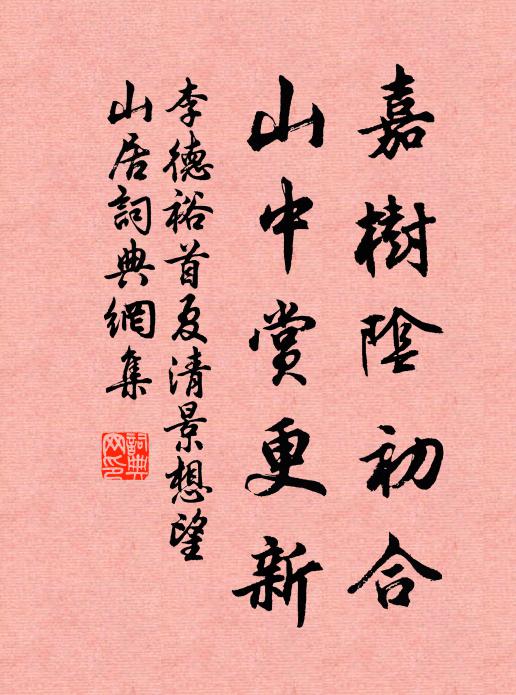 嘉樹陰初合
山中賞更新
李德裕首夏清景想望
山居詞典網集
詞典
网印